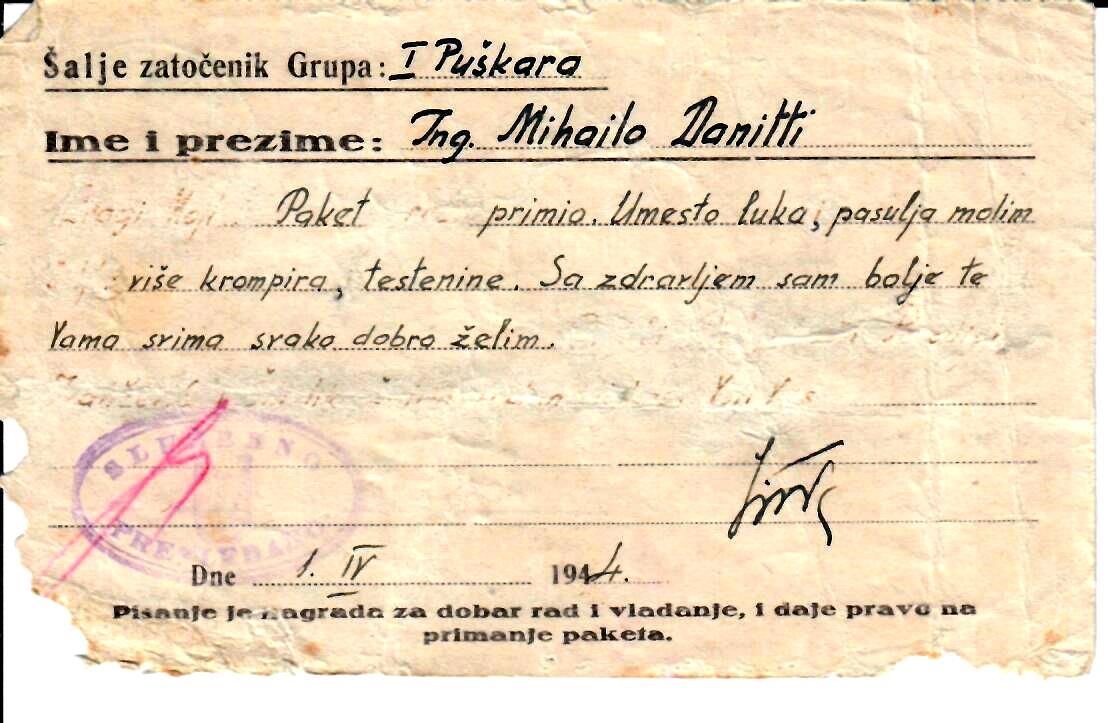 Šalje zatočenik Grupa: I Puškara
Ime i prezime: Ing. Mihailo Danitti
Dragi Moji. Paket primio. Umesto luka, pasulja molim
više krompira, testenine. Sa zdravljem sam bolje te
Vama svima svako dobro želim.
SLUŽBENO
PREGLEDANO
Dne 1. IV 1944.
Pisanje je nagrada za dobar rad i vladanje, i daje pravo na
primanje paketa.